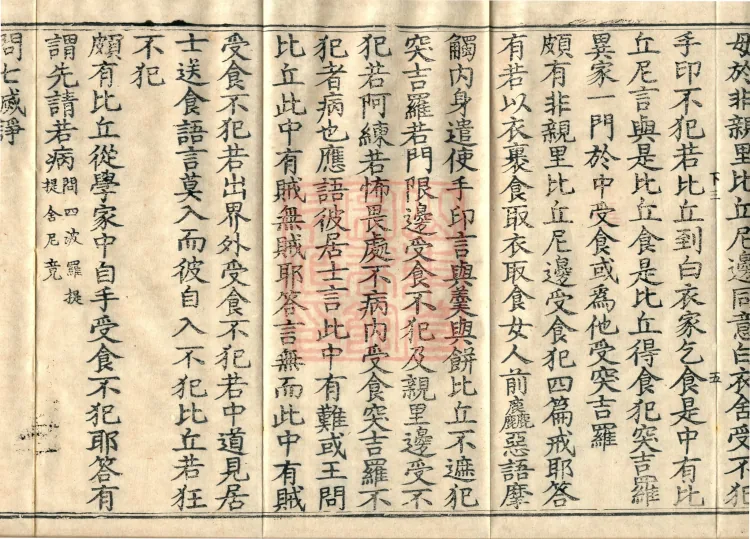 母於非親里比丘尼邊同意白衣舍受不犯
手印不犯若比丘到白衣家乞食是中有比
丘尼言與是比丘食是比丘得食犯突吉羅
異家一門於中受食或為他受突吉羅
頗有非親里比丘尼邊受食犯四篇戒耶答
有若以衣裹食取衣取食女人前麤惡語摩
觸內身遣使手印言與羹與餅比丘不遮犯
突吉羅若門限邊受食不犯及親里邊受不
犯若阿練若怖畏處不病內受食突吉羅不
犯者病也應語彼居士言此中有難或王問
比丘此中有賊無賊耶答言無而此中有賊
受食不犯若出界外受食不犯若中道見居
士送食語言莫入而彼自入不犯比丘若狂
不犯
頗有比丘從學家中自手受食不犯耶答有
謂先請若病問四波羅提
提舍尼竟
問七滅諍
下三
五